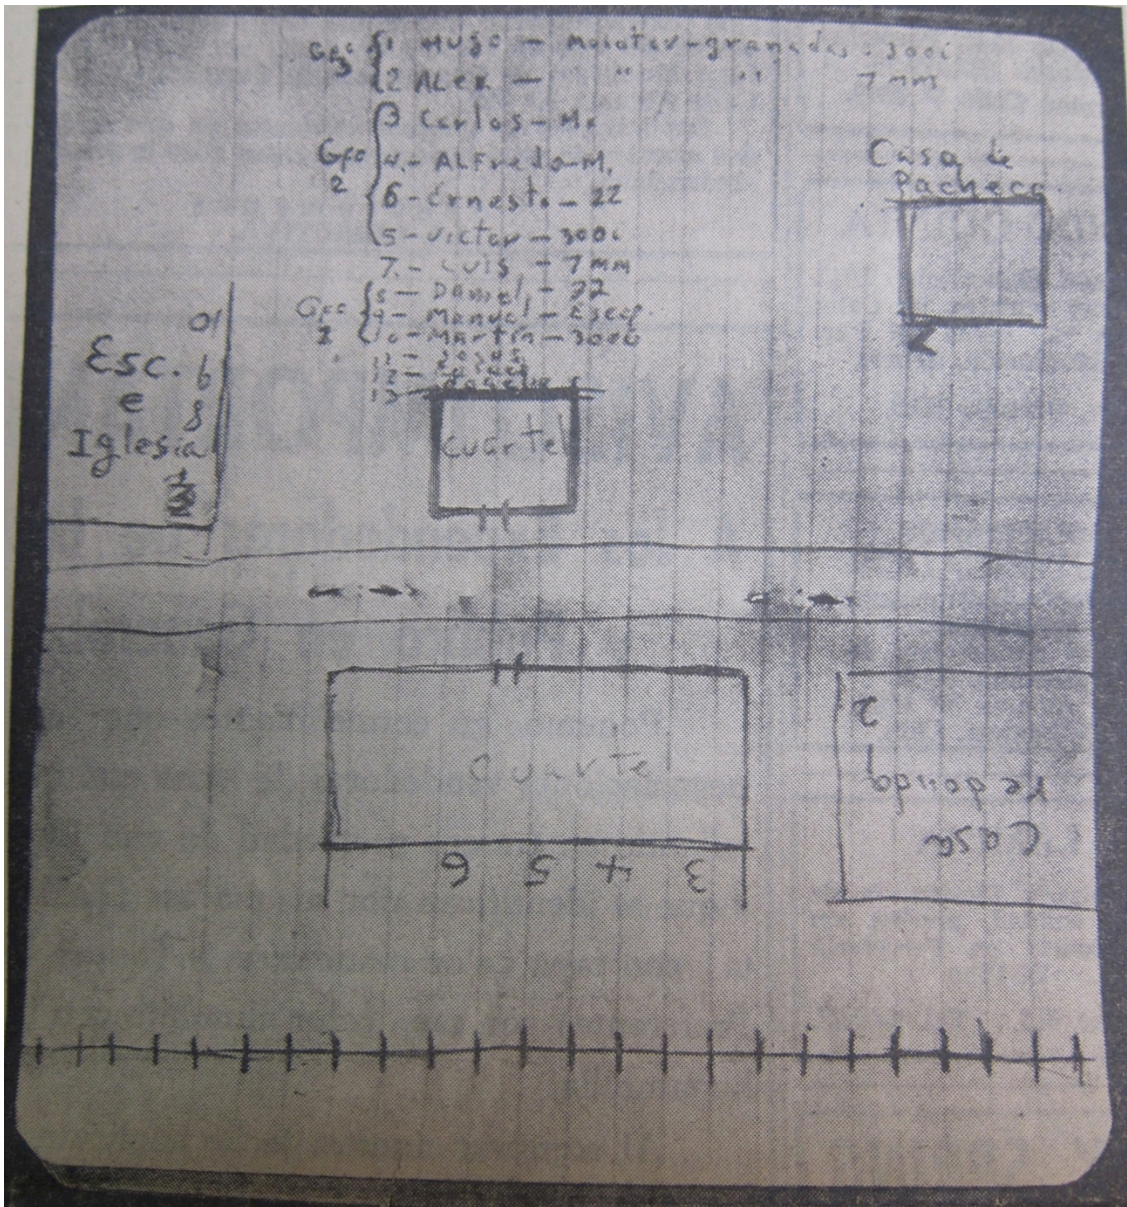 Gpo 3 { 1 Hugo - Molotov - granadas - 3006
2 ALex - " " 7 mm
3 Carlos - M1
Gpo 2 { 4.- ALFredo - M1
6 - Ernesto - 22
5 - Victor - 3006
7.- Luis - 7 mm
8 - Daniel - 22
Gpo 1 { 9 - Manuel - Escop.
10 - Martin - 3006
11 -
12 -
13 - Rogelio
Casa de
Pacheco
Esc.
e
Iglesia
10
9
8
7
cuartel
cuartel
6 5 4 3
2
1
Casa
redonda